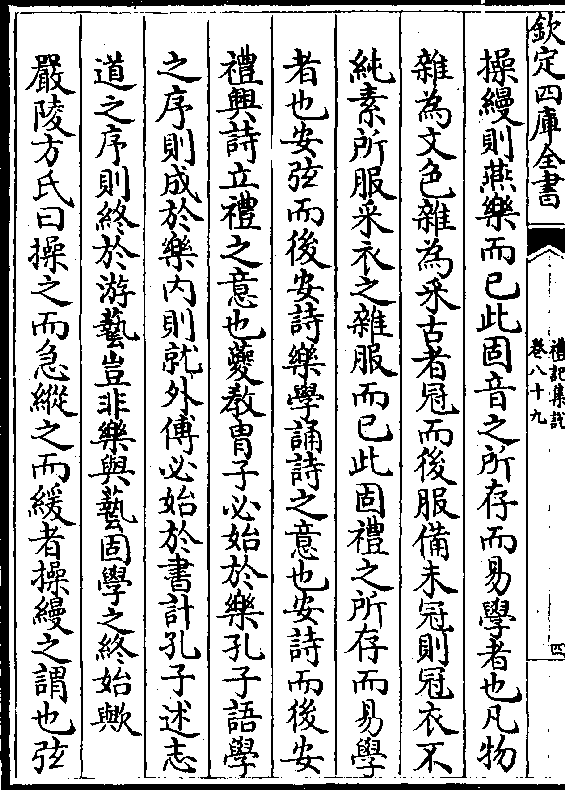 欽定四庫全書
禮記集說
卷八十九
四
操縵則燕樂而已此固音之所存而易學者也凡物
雜為文色雜為采古者冠而後服備未冠則冠衣不
純素所服采衣之雜服而已此固禮之所存而易學
者也安弦而後安詩樂學誦詩之意也安詩而後安
禮興詩立禮之意也夔教胄子必始於樂孔子語學
之序則成於樂内則就外傅必始於書計孔子述志
道之序則終於游藝豈非樂與藝固學之終始歟
嚴陵方氏曰操之而急縱之而緩者操縵之謂也弦